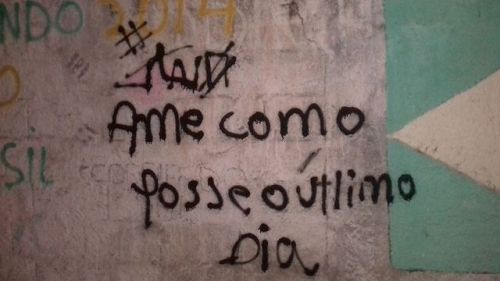 NDO 2014
#
Ame como
SIL
fosse o útlimo
Dia